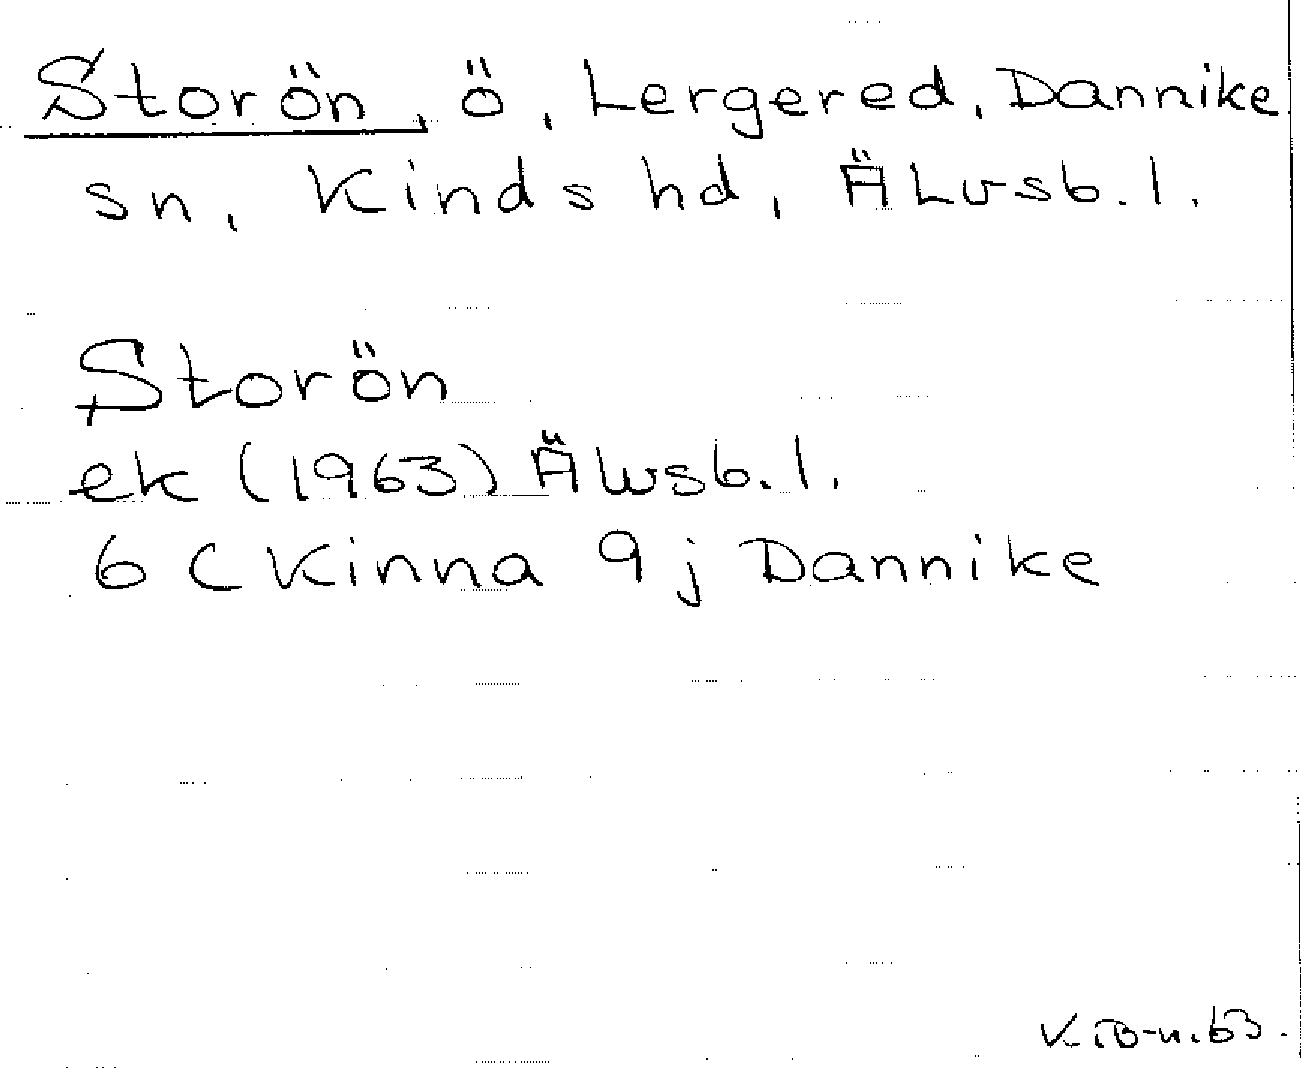 Storön, ö, Lergered, Dannike
sn, Kinds hd, Älvsb.l.
Storön
ek (1963) Älvsb.l.
6 C Kinna 9 j Dannike